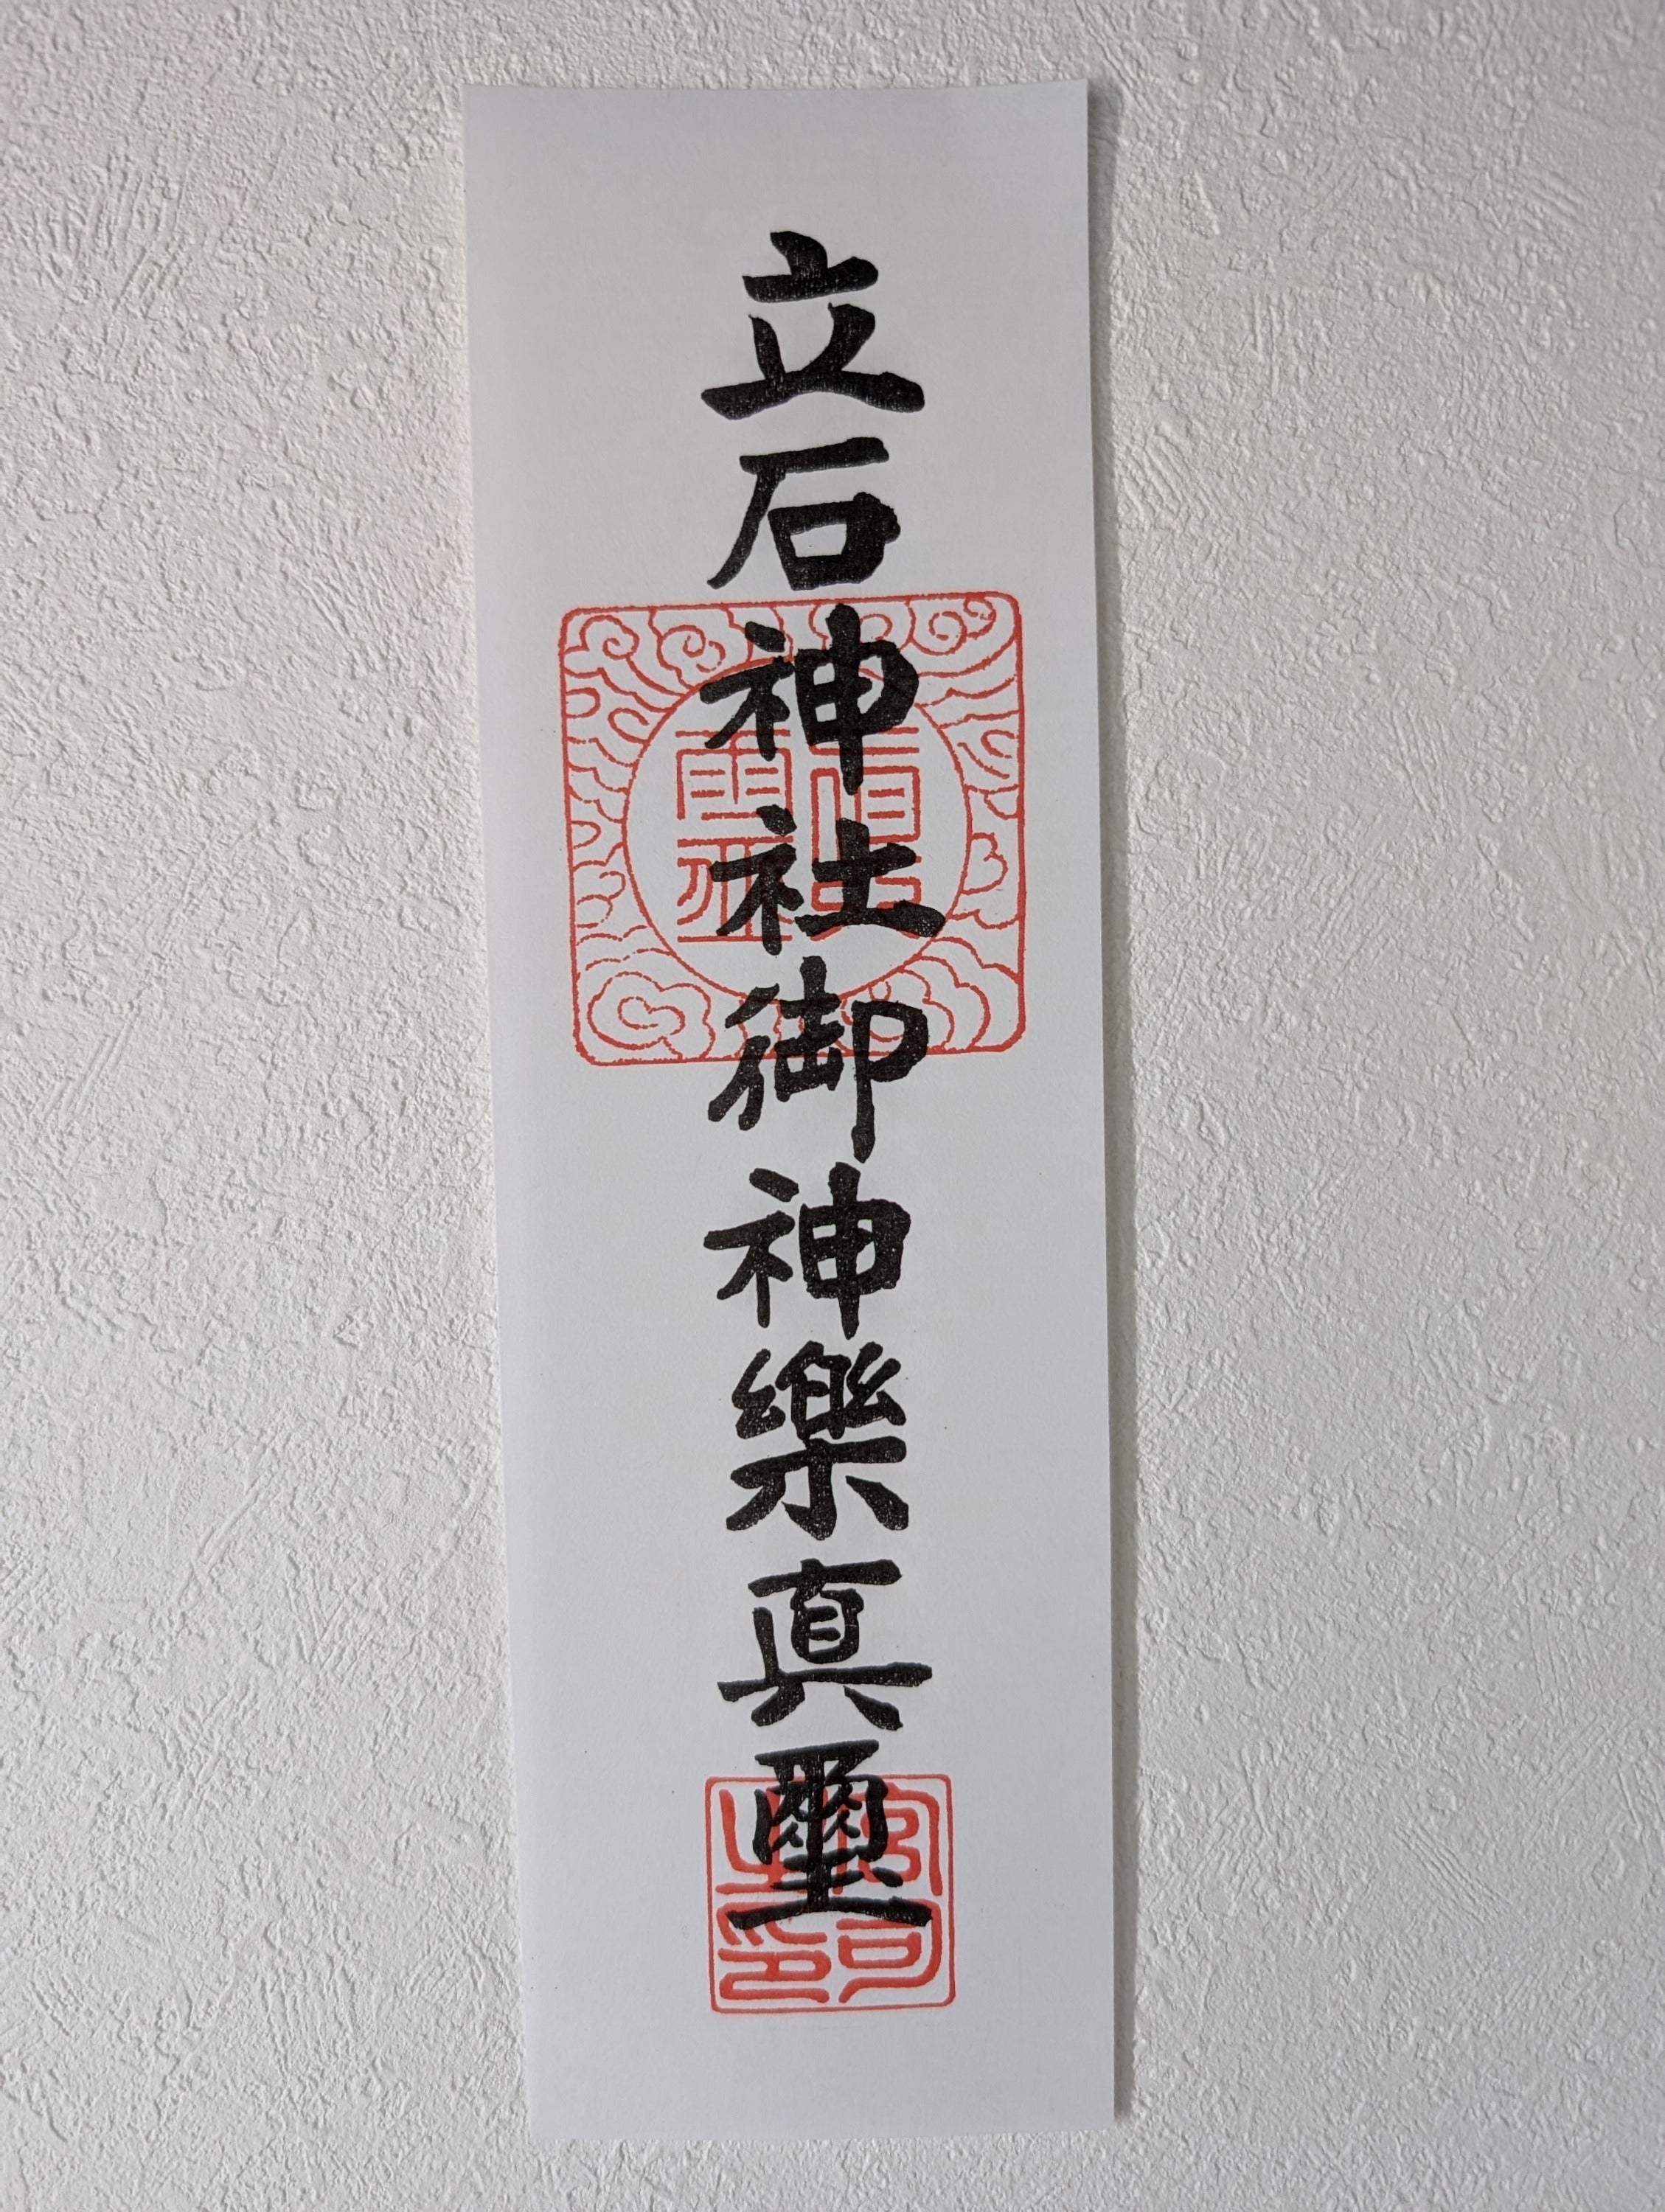 立石神社御神樂真璽